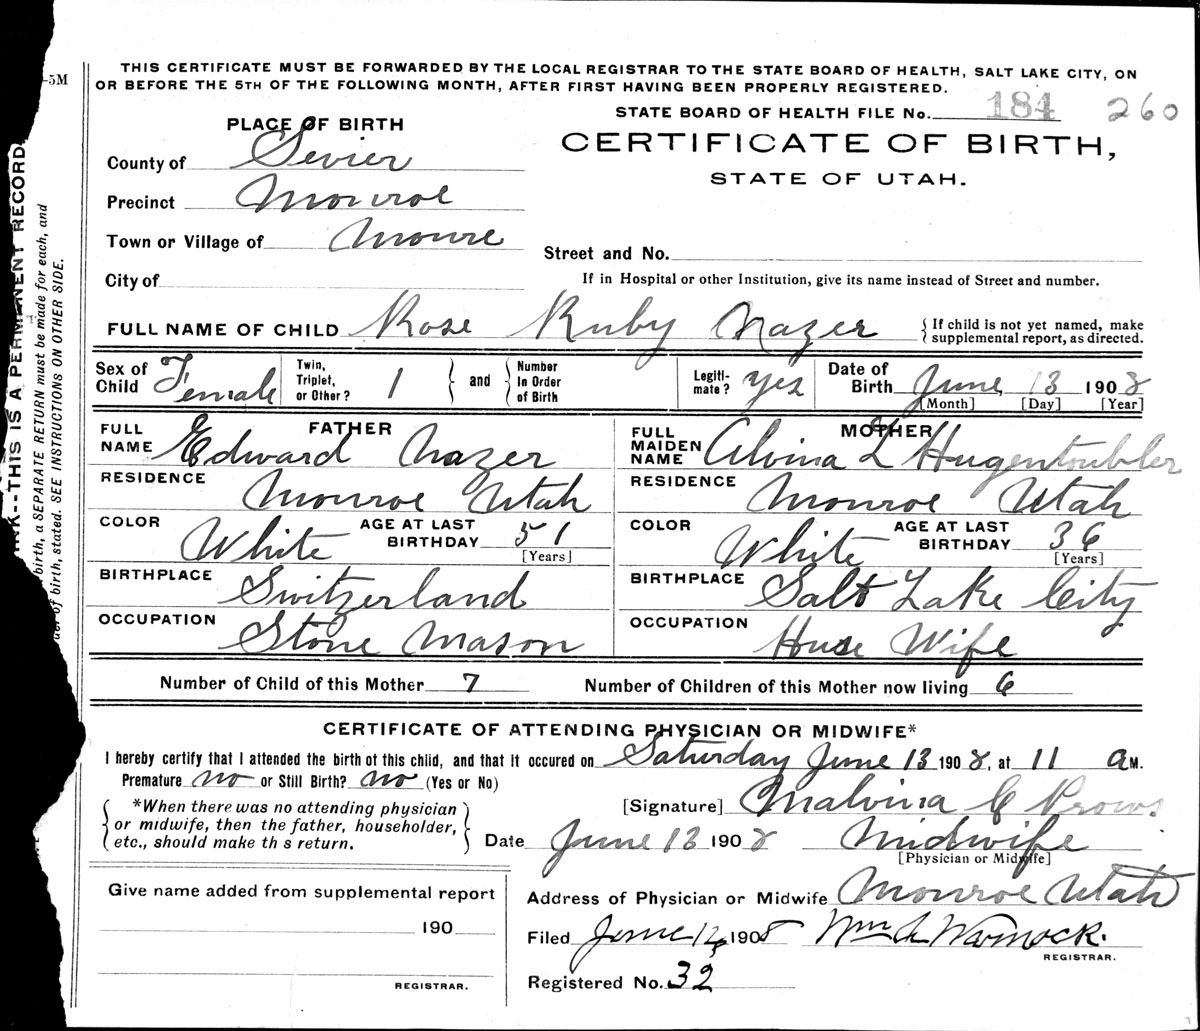 -5M
THIS CERTIFICATE MUST BE FORWARDED BY THE LOCAL REGISTRAR TO THE STATE BOARD OF HEALTH, SALT LAKE CITY, ON
OR BEFORE THE 5TH OF THE FOLLOWING MONTH, AFTER FIRST HAVING BEEN PROPERLY REGISTERED.
STATE BOARD OF HEALTH FILE No. 184 260
PLACE OF BIRTH
CERTIFICATE OF BIRTH,
STATE OF UTAH.
County of Sevier
Precinct Monroe
Town or Village of Monroe
Street and No.
City of
If in Hospital or other Institution, give its name instead of Street and number.
FULL NAME OF CHILD Rose Ruby Nazer
{ If child is not yet named, make
supplemental report, as directed.
Sex of Child Female Twin, Triplet, or Other? 1 } and { Number In Order of Birth Legiti- mate? yes Date of Birth June 13 1908
[Month] [Day] [Year]
FATHER
FULL NAME Edward Nazer
RESIDENCE Monroe Utah
COLOR White AGE AT LAST BIRTHDAY 51
[Years]
BIRTHPLACE Switzerland
OCCUPATION Stone Mason
MOTHER
FULL MAIDEN NAME Alvina L Hugentoubler
RESIDENCE Monroe Utah
COLOR White AGE AT LAST BIRTHDAY 36
[Years]
BIRTHPLACE Salt Lake City
OCCUPATION House Wife
Number of Child of this Mother 7 Number of Children of this Mother now living 6
CERTIFICATE OF ATTENDING PHYSICIAN OR MIDWIFE*
I hereby certify that I attended the birth of this child, and that it occured on Saturday June 13 1908, at 11 a M.
Premature no or Still Birth? no (Yes or No)
{ *When there was no attending physician
or midwife, then the father, householder,
etc., should make th s return. }
[Signature] Malvina C Prows
Date June 13 1908 Midwife
[Physician or Midwife]
Address of Physician or Midwife Monroe Utah
Filed June 1908 Wm A Warnock.
REGISTRAR.
Registered No. 32
Give name added from supplemental report
190
REGISTRAR.
INK--THIS IS A PERMANENT RECORD.
birth, a SEPARATE RETURN must be made for each, and
der of birth, stated. SEE INSTRUCTIONS ON OTHER SIDE.